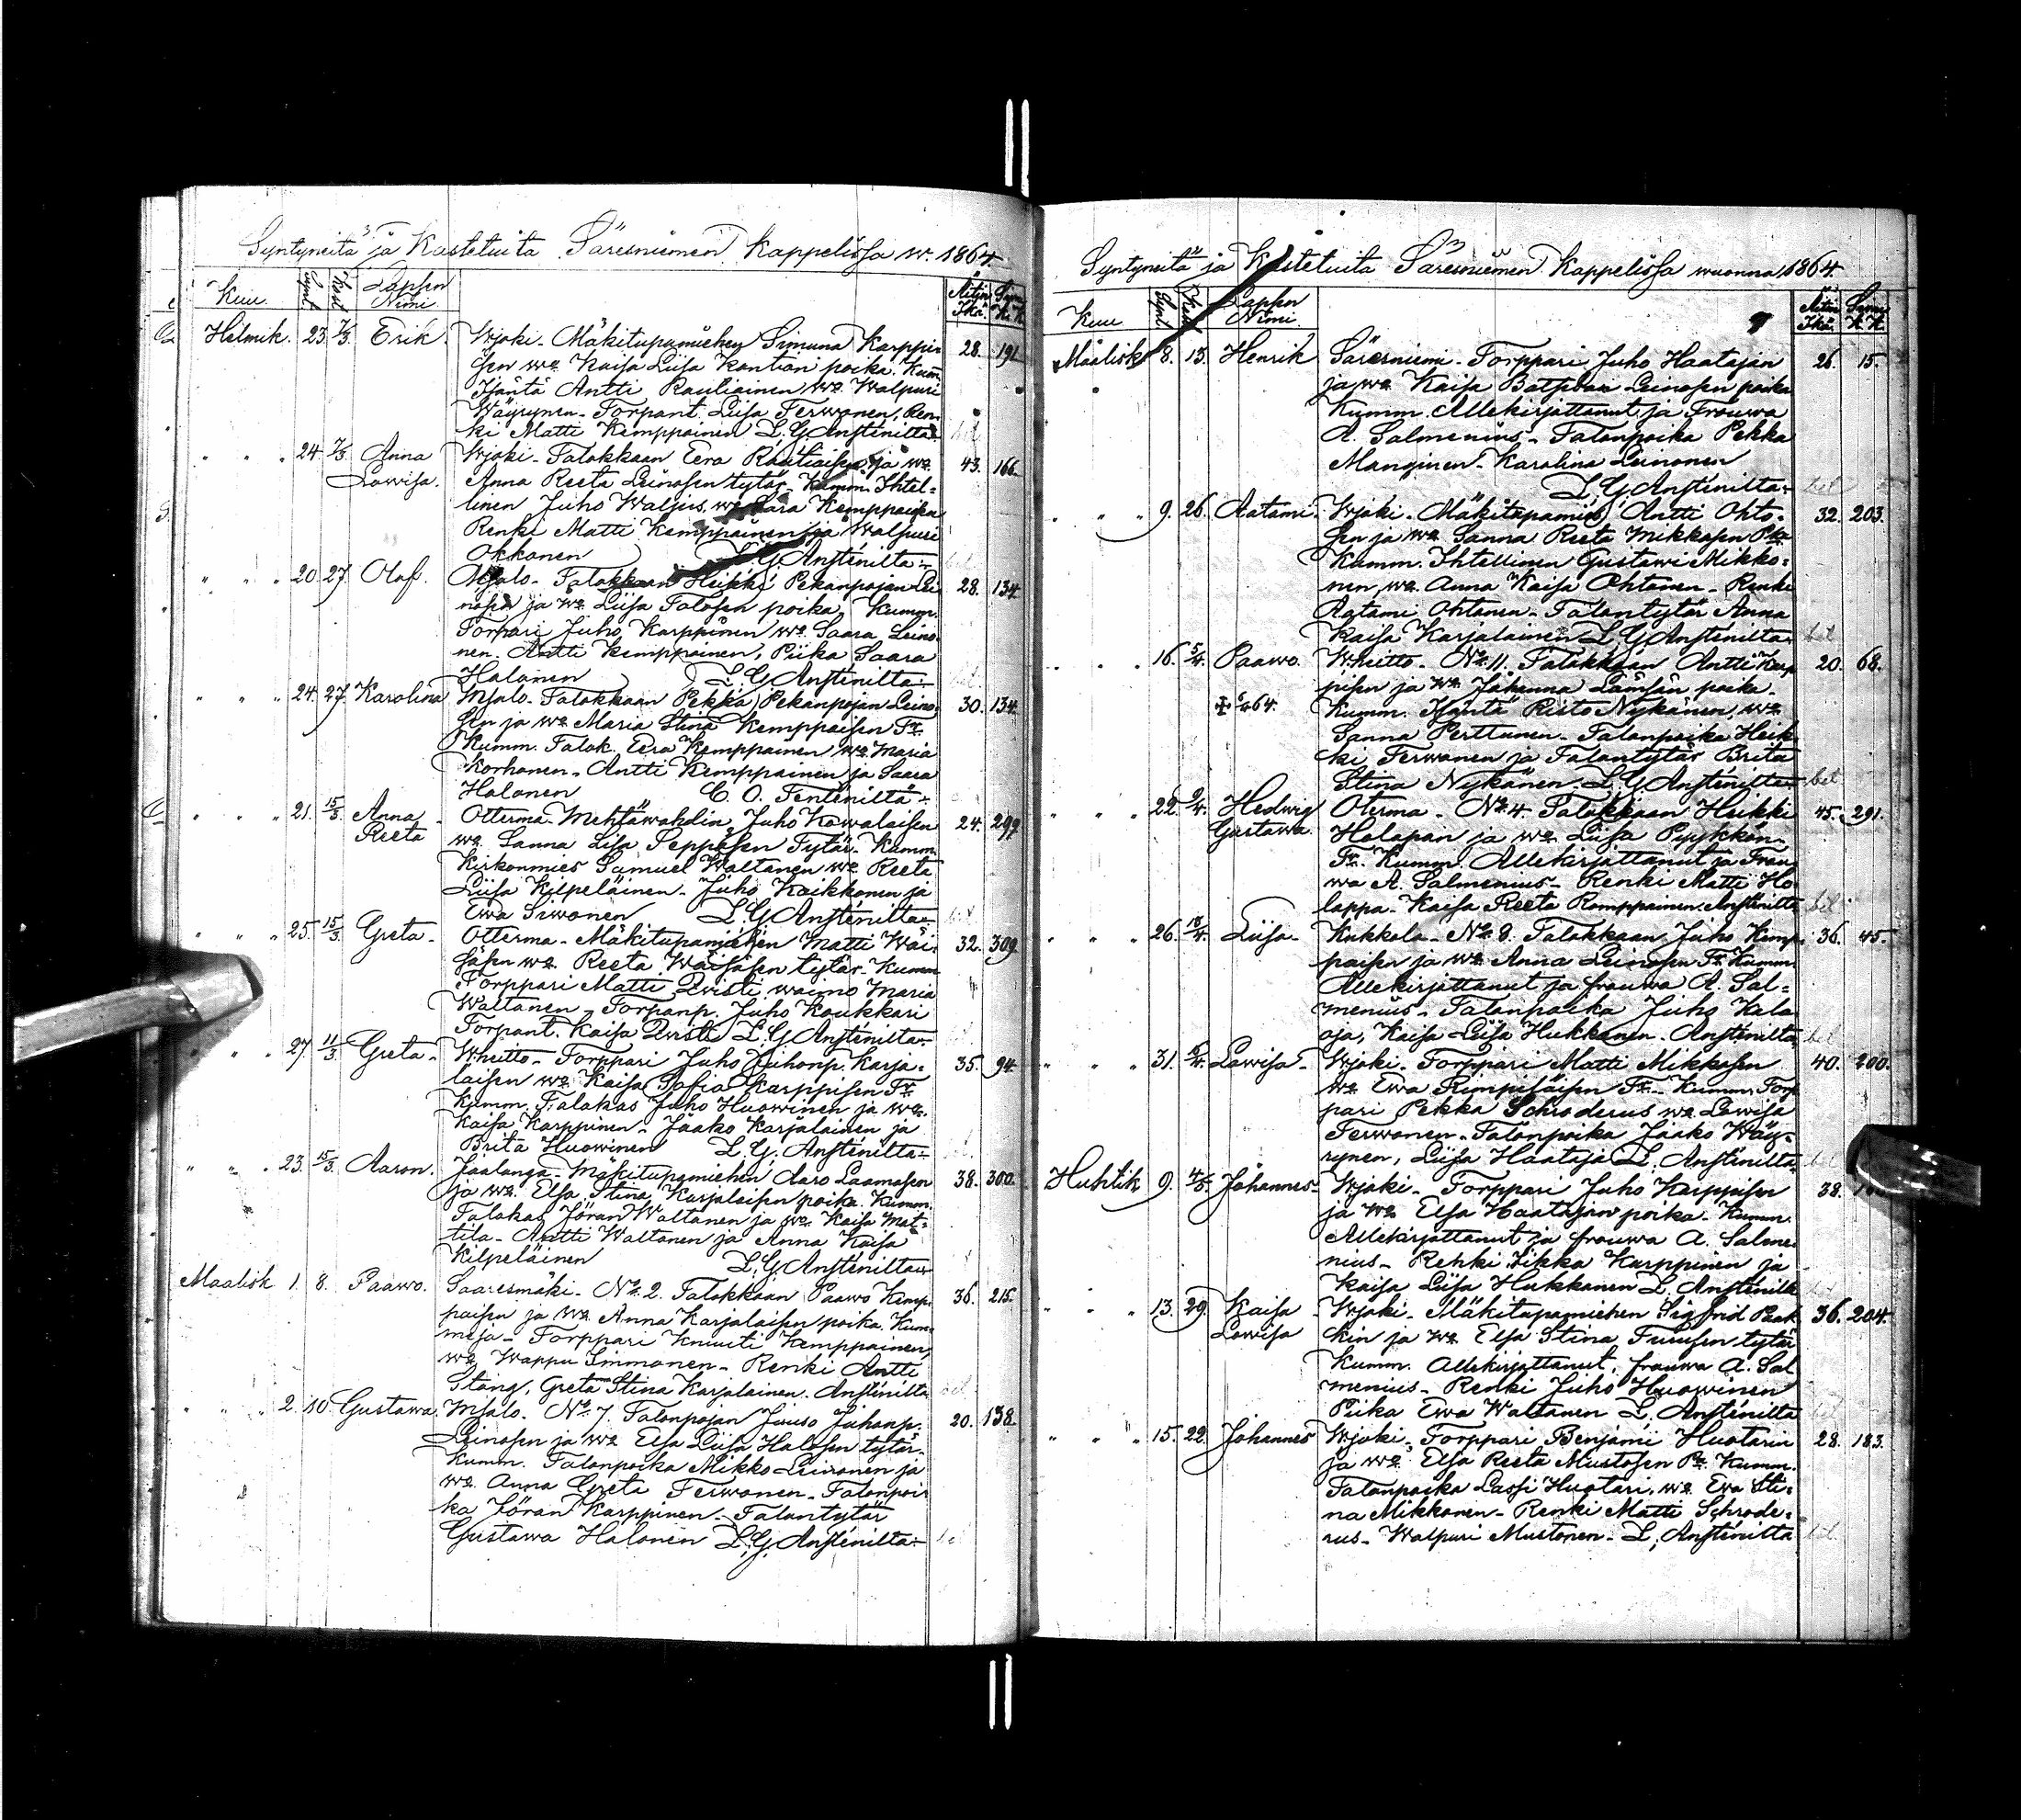 Syntyneitä ja Kastetuita Säresniemen Kappelissa w. 1864.
Kuu Synt Kast Lapsen Nimi Äitin Ikä Sivu K.K.
Helmik. 23. 7/3. Erik Wjoki. Mäkitupamiehen Simuna Karppi- 28. 191.
sen wo Kaisa Liisa Kontian poika. Kum̄.
Isäntä Antti Rautiainen wo Walpuri
Wäyrynen. Torpant. Liisa Terwonen, Ren-
ki Matti Kemppainen L. G. Ansténilta
24. 7/3 Anna Wjoki. Talokkaan Eera Rautiaisen ja wo 43. 166.
Lowisa. Anna Reeta Leinosen tytär. Kumm. Ihtel-
linen Juho Waljus, wo Kemppainen
Renki Matti Kemppainen ja Walpuri
Okkonen L. G. Ansténilta
20. 27. Olof. Talokkaan Heikki Pekanpojan Lei 28. 134
nosen ja wo Liisa Talosen poika, Kumm.
Torpari Juho Karppinen wo Saara Leino-
nen. Antti Kemppainen, Piika Saara
Halonen L. G. Ansténilta
24. 27. Karolina Talokkaan Pekka Pekanpojan Leino- 30. 134.
sen ja wo Maria Stina Kemppaisen Tr.
Kumm. Talok. Eera Kemppainen wo Maria
Korhonen. Antti Kemppainen ja Saara
Halonen C. O. Fenténiltä
21. 15/3. Anna Otterma. Mehtäwahdin Juho Kowalaisen 24. 299
Reeta wo Sanna Lisa Seppäsen Tytär. Kumm.
Kirkonmies Samuel Waltanen wo Reeta
Liisa Kilpeläinen. Juho Kaikkonen ja
Ewa Siwonen L. G. Ansténilta
25. 15/3. Greta. Otterma. Mäkitupamiehen Matti Wäi- 32. 309
säsen wo Reeta Wäisäsen tytär. Kumm
Torppari Matti Qvisti waimo Maria
Waltanen, Torpanp. Juho Koukkari
Torpant. Kaisa Qvisti L. G. Ansténilta
27. 11/3 Greta. Torppari Juho Juhonp. Karja- 35. 94.
laisen wo Kaisa Sofia Karppisen Tr.
Kumm. Talokas Juho Huowinen ja wo
Kaisa Karppinen. Jaako Karjalainen ja
Brita Huowinen L. G. Ansténilta
23. 15/3. Aaron. Jaalanga. Mäkitupamiehen Aaro Laamasen 38. 300.
ja wo Elsa Stina Karjalaisen poika. Kumm.
Talokas Jöran Waltanen ja wo Kaisa Mat-
tila. Antti Waltanen ja Anna Kaisa
Kilpeläinen L. G. Ansténilta
Maalisk 1. 8. Paawo. Saaresmäki. No. 2. Talokkaan Paawo Kemp- 36. 215.
paisen ja wo Anna Karjalaisen poika. Kum-
meja. Torppari Knuuti Kemppainen,
wo Wappu Simmonen. Renki Antti
Stäng, Greta Stina Karjalainen. Ansténilta
2. 10. Gustawa. No. 7. Talonpojan Juuso Juhonp. 20. 138.
Leinosen ja wo Elsa Liisa Halosen tytär.
Kumm. Talonpoika Mikko Leinonen ja
wo Anna Greta Terwonen. Talonpoi-
ka Jöran Karppinen. Talontytär
Gustawa Halonen L. G. Ansténilta
Syntyneitä ja Kastetuita Säresniemen Kappelissa wuonna 1864.
9
Kuu Synt Kast Lapsen Nimi. Äitin Ikä. Sivu K.K.
Maalisk 8. 13. Henrik Säresniemi. Torppari Juho Haatajan 26. 15.
ja wo Kaisa Leinosen poika
Kumm. Allekirjottanut ja Frouwa
A. Salmenius. Talonpoika Pekka
Manginen. Karolina Leinonen
L. G. Ansténilta
9. 26. Aatami. Wjoki. Mäkitupamies Antti Ohto- 32. 203.
sen ja wo Sanna Reeta Mikkosen Pka
Kumm. Ihtellinen Gustawi Mikko-
nen, wo Anna Kaisa Ohtonen. Renki
Aatami Ohtonen. Talontytär Anna
Kaisa Karjalainen L. G. Ansténilta
16. 5/4. Paawo. No. 11. Talokkaan Antti Karp 20. 68.
pisen ja wo Johanna Lämsän poika.
64. Kumm. Isäntä Risto Nykänen, wo
Sanna Perttunen. Talonpoika Heik
ki Terwonen ja Talontytär Brita
Stina Nykänen. L. G. Ansténilta
22. 9/4. Hedwig Oterma. No. 4. Talokkaan Heikki 45. 291.
Gustawa. Holapan ja wo Liisa Pyykkön-
Tr. Kumm. Allekirjottanut ja Frau-
wa A. Salmenius. Renki Matti Ho-
lappa. Kaisa Reeta Romppainen. Ansténilta
26. Liisa. Kukkola. No. 8. Talokkaan Juho Kemp- 36. 45.
paisen ja wo Anna Leinosen Tr. Kumm.
Allekirjottanut ja frouwa A. Sal-
menius. Talonpoika Juho Kala
oja, Kaisa Liisa Hukkanen. Ansténilta
31. Lowisa. Wjoki. Torppari Matti Mikkosen 40. 200.
wo Ewa Rimpiläisen Tr. Kumm. Torp
pari Pekka Schroderus wo Lowisa
Terwonen. Talonpoika Jaako Wäy-
rynen, Liisa Haataja L. Ansténilta
Huhtik 9. 4/5. Johannes. Wjoki. Torppari Juho Karppisen 38.
ja wo Elsa Haatajan poika. Kumm.
Allekirjottanut ja frouwa A. Salme-
nius. Renki Karppinen ja
Kaisa Liisa Hukkanen L. Ansténilt
13. 29. Kaisa Wjoki. Mäkitupamiehen Sigfrid Paak- 36. 204.
Lowisa kin ja wo Elsa Stina Turusen tytär
Kumm. Allekirjottanut, frouwa A. Sal
menius. Renki Juho Huowinen
Piika Ewa Waltanen L. Ansténilta
15. 22. Johannes Wjoki. Torppari Benjami Huotarin 28. 183.
ja wo Elsa Reeta Mustosen Pr. Kumm.
Talonpoika Lassi Huotari, wo Ewa Sti-
na Mikkonen. Renki Matti Schrode-
rus. Walpuri Mustonen. L. Ansténilta